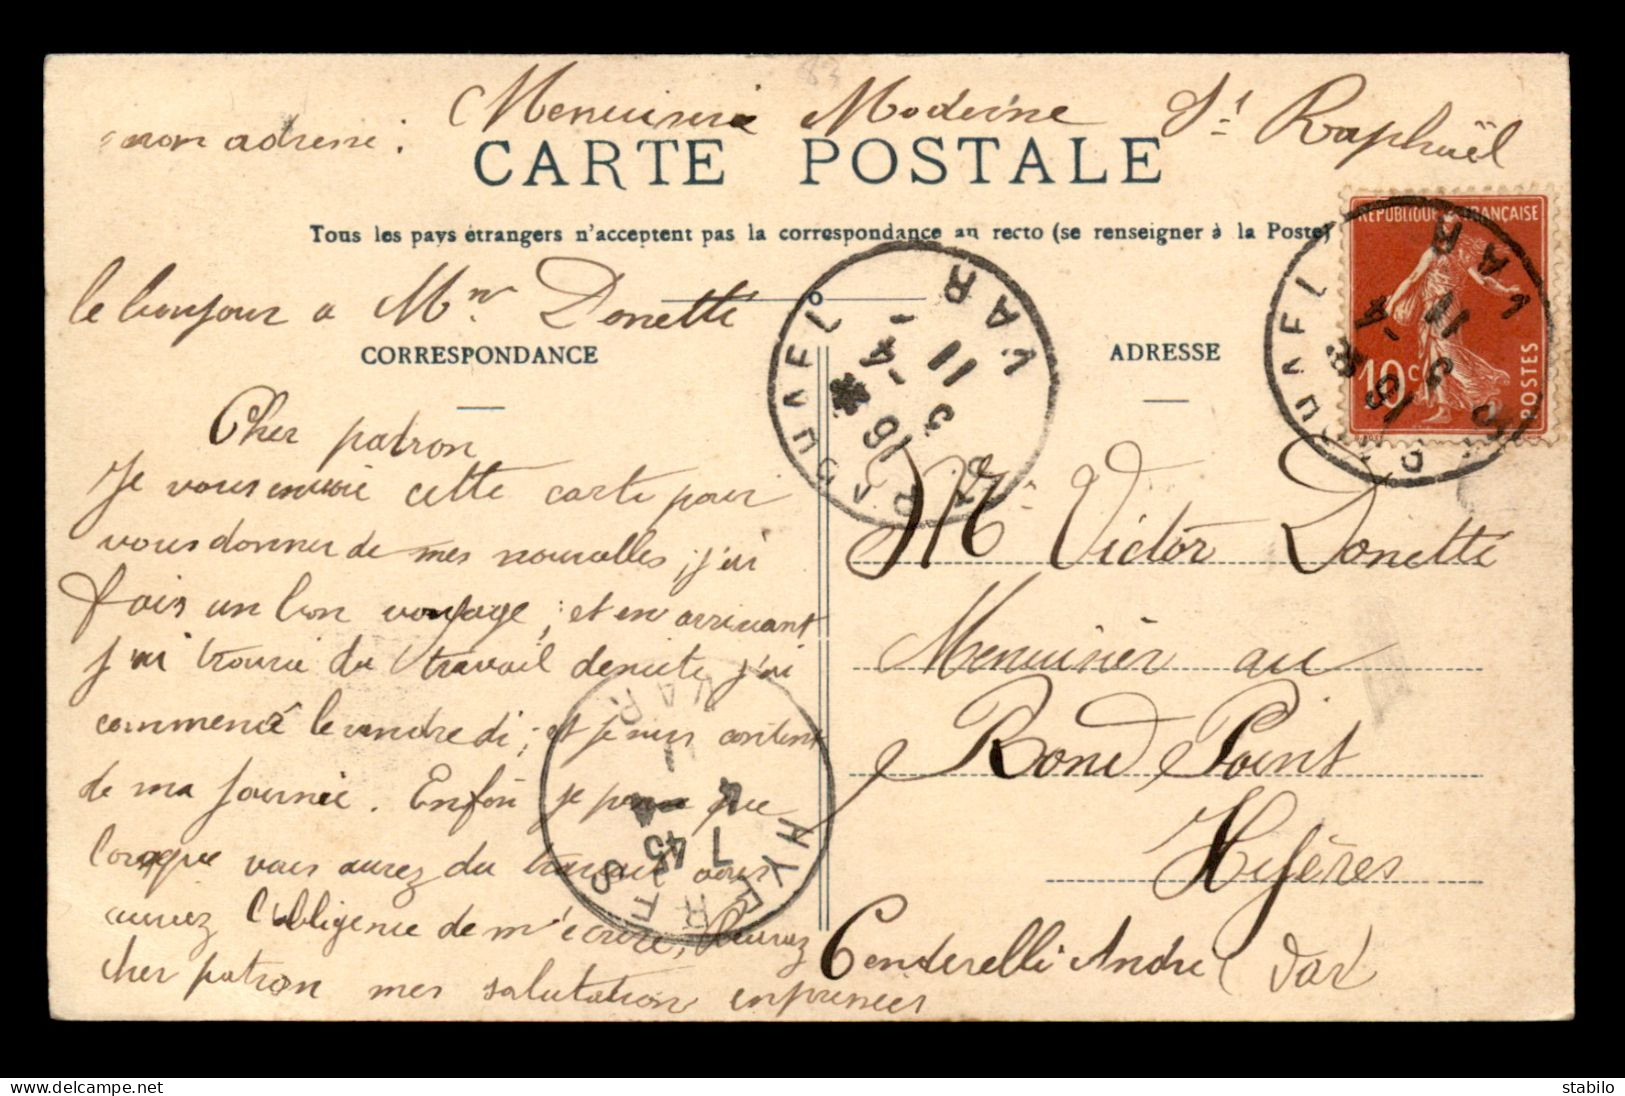 mon adresse : Menuiserie Moderne St Raphaël
CARTE POSTALE
Tous les pays étrangers n'acceptent pas la correspondance au recto (se renseigner à la Poste)
le bonjour a Mme Donetti
CORRESPONDANCE
Cher patron
Je vous envoie cette carte pour
vous donner de mes nouvelles, j'ai
fais un bon voyage ; et en arrivant
j'ai trouvé du travail de suite j'ai
commencé le vendredi ; et je suis content
de ma journée. Enfin je pense que
lorsque vous aurez du travail vous
aurez l'obligence de m'écrire, Recevez
cher patron mes salutation empresées
Cenderelli André
ADRESSE
Mr Victor Donetti
Menuisier au
Rond Point
Hyères
Var
REPUBLIQUE FRANÇAISE
10c
POSTES
VAR
15
3 -4
11
HYERES
VAR
7 45
4
stabilo